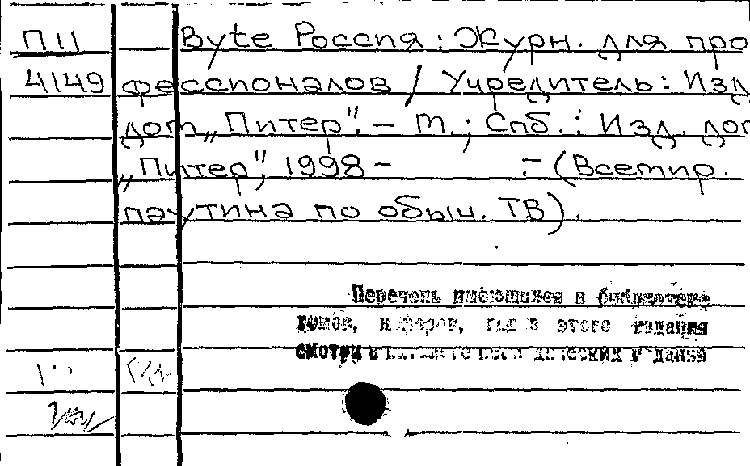 П11 Byte Россия: Журн. для про
4149 фессионалов / Учредитель: Изд.
дом „Питер". – М.; Спб.: Изд. дом
„Питер", 1998 – . – (Всемир.
паутина по обыч. ТВ).
Перечень имеющихся в библиотеке
томов, номеров, год в этого издания
смотри в